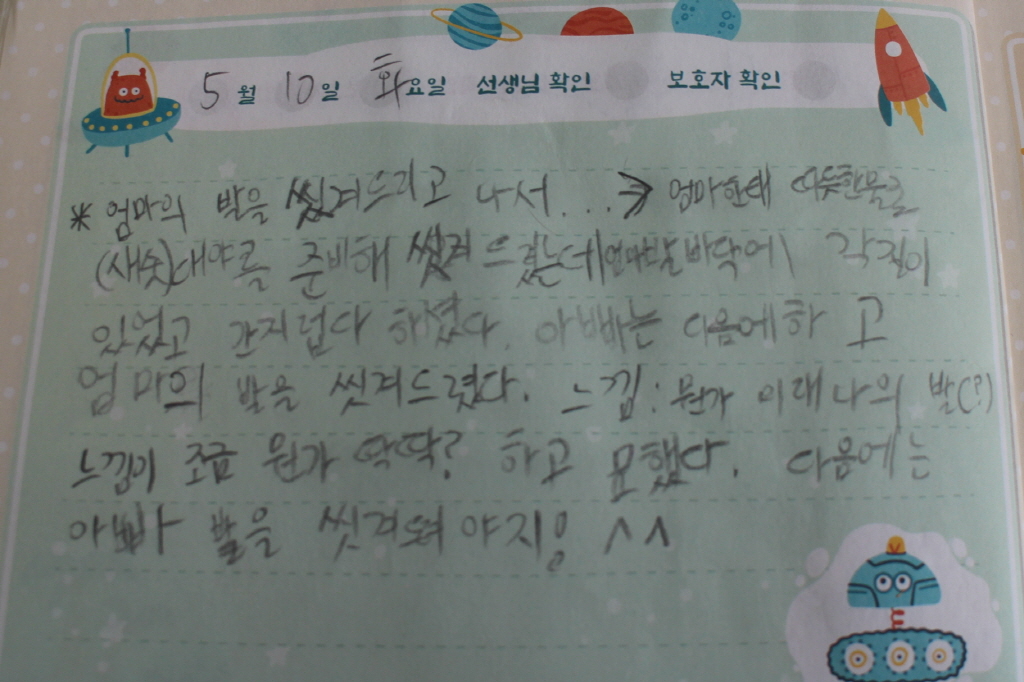 5월 10일 화요일 선생님 확인 보호자 확인
* 엄마의 발을 씼겨드리고 나서...→ 엄마한태 따뜻한물을
(새숫)대야를 준비해 씼겨 드렸는데 엄마발바닥에 각질이
있었고 간지럽다 하셨다. 아빠는 다음에하고
엄마의 발을 씻겨드렸다. 느낌: 뭔가 미래 나의 발(?)
느낌이 조금 뭔가 딱딱? 하고 묘했다. 다음에는
아빠 발을 씻겨드려야지! ^^